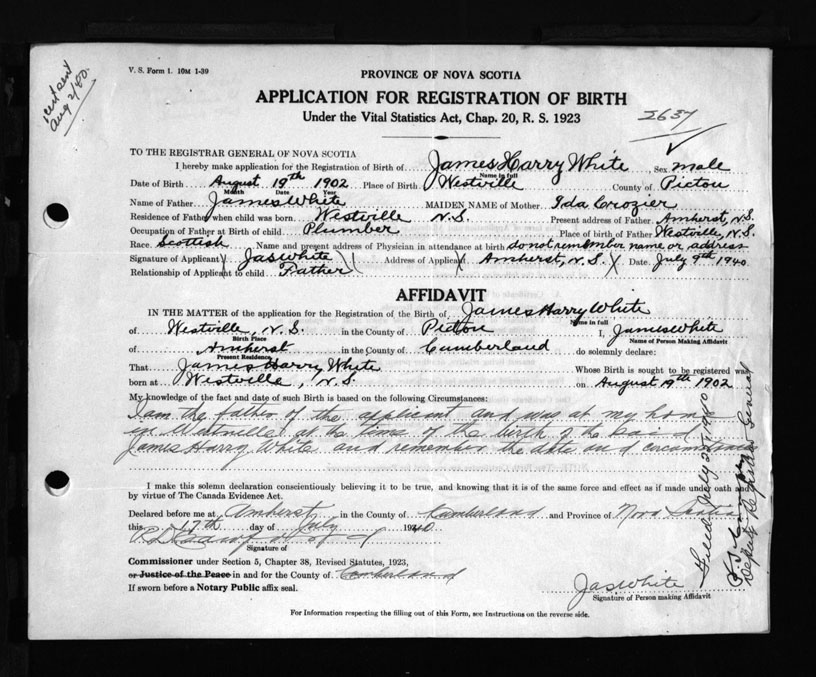 V. S. Form 1. 10M 1-39
sent Aug 2/40.
PROVINCE OF NOVA SCOTIA
APPLICATION FOR REGISTRATION OF BIRTH
Under the Vital Statistics Act, Chap. 20, R. S. 1923
2637
TO THE REGISTRAR GENERAL OF NOVA SCOTIA
I hereby make application for the Registration of Birth of James Harry White Sex male
Name in full
Date of Birth August 19th 1902 Place of Birth Westville County of Pictou
Month Date Year
Name of Father James White MAIDEN NAME of Mother Ida Crozier
Residence of Father when child was born Westville N.S. Present address of Father Amherst, N.S.
Occupation of Father at Birth of child Plumber Place of birth of Father Westville, N.S.
Race Scottish Name and present address of Physician in attendance at birth do not remember name or address
Signature of Applicant Jas White Address of Applicant Amherst, N.S. Date July 9th 1940
Relationship of Applicant to child Father
AFFIDAVIT
IN THE MATTER of the application for the Registration of the Birth of James Harry White
Name in full
of Westville, N.S. in the County of Pictou I, James White
Birth Place Name of Person Making Affidavit
of Amherst in the County of Cumberland do solemnly declare:
Present Residence
That James Harry White Whose Birth is sought to be registered was
born at Westville, N.S. on August 19th 1902
My knowledge of the fact and date of such Birth is based on the following Circumstances:
I am the father of the applicant and was at my home
in Westville at the time of the birth of the said
James Harry White and remember the date and circumstances
I make this solemn declaration conscientiously believing it to be true, and knowing that it is of the same force and effect as if made under oath and
by virtue of The Canada Evidence Act.
Declared before me at Amherst in the County of Cumberland and Province of Nova Scotia
this 17th day of July 1940.
Signature of
Commissioner under Section 5, Chapter 38, Revised Statutes, 1923,
or Justice of the Peace in and for the County of Cumberland
If sworn before a Notary Public affix seal.
Jas White
Signature of Person making Affidavit
For Information respecting the filling out of this Form, see Instructions on the reverse side.
Filed July 22, 1940
Deputy Registrar General